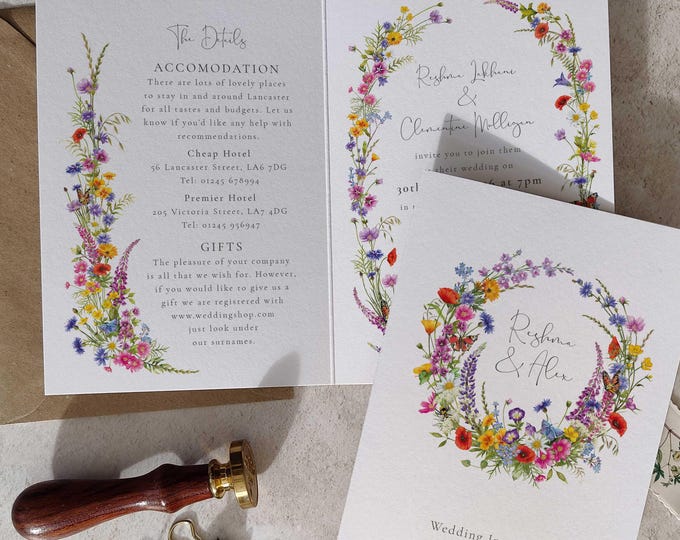 The Details
ACCOMODATION
There are lots of lovely places
to stay in and around Lancaster
for all tastes and budgets. Let us
know if you'd like any help with
recommendations.
Cheap Hotel
56 Lancaster Street, LA6 7DG
Tel: 01245 678994
Premier Hotel
205 Victoria Street, LA7 4DG
Tel: 01245 956947
GIFTS
The pleasure of your company
is all that we wish for. However,
if you would like to give us a
gift we are registered with
www.weddingshop.com
just look under
our surnames.
Reshma Lakhani
&
Clementine Milligan
invite you to join them
their wedding on
30th
at 7pm
Reshma
& Alex
Wedding